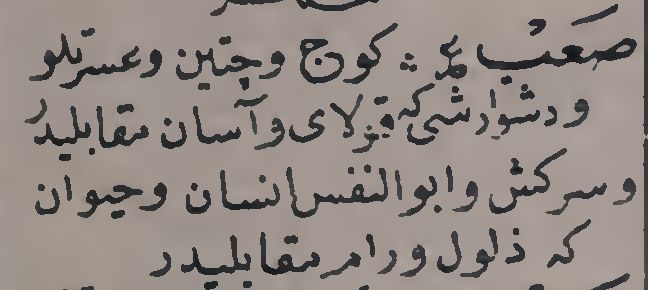 صَعْبْ ع كوج وچتين وعسرتلو
ودشوار شى كه قولاى وآسان مقابليدر
وسركش وابو النفس انسان وحيوان
كه ذلول ورام مقابليدر